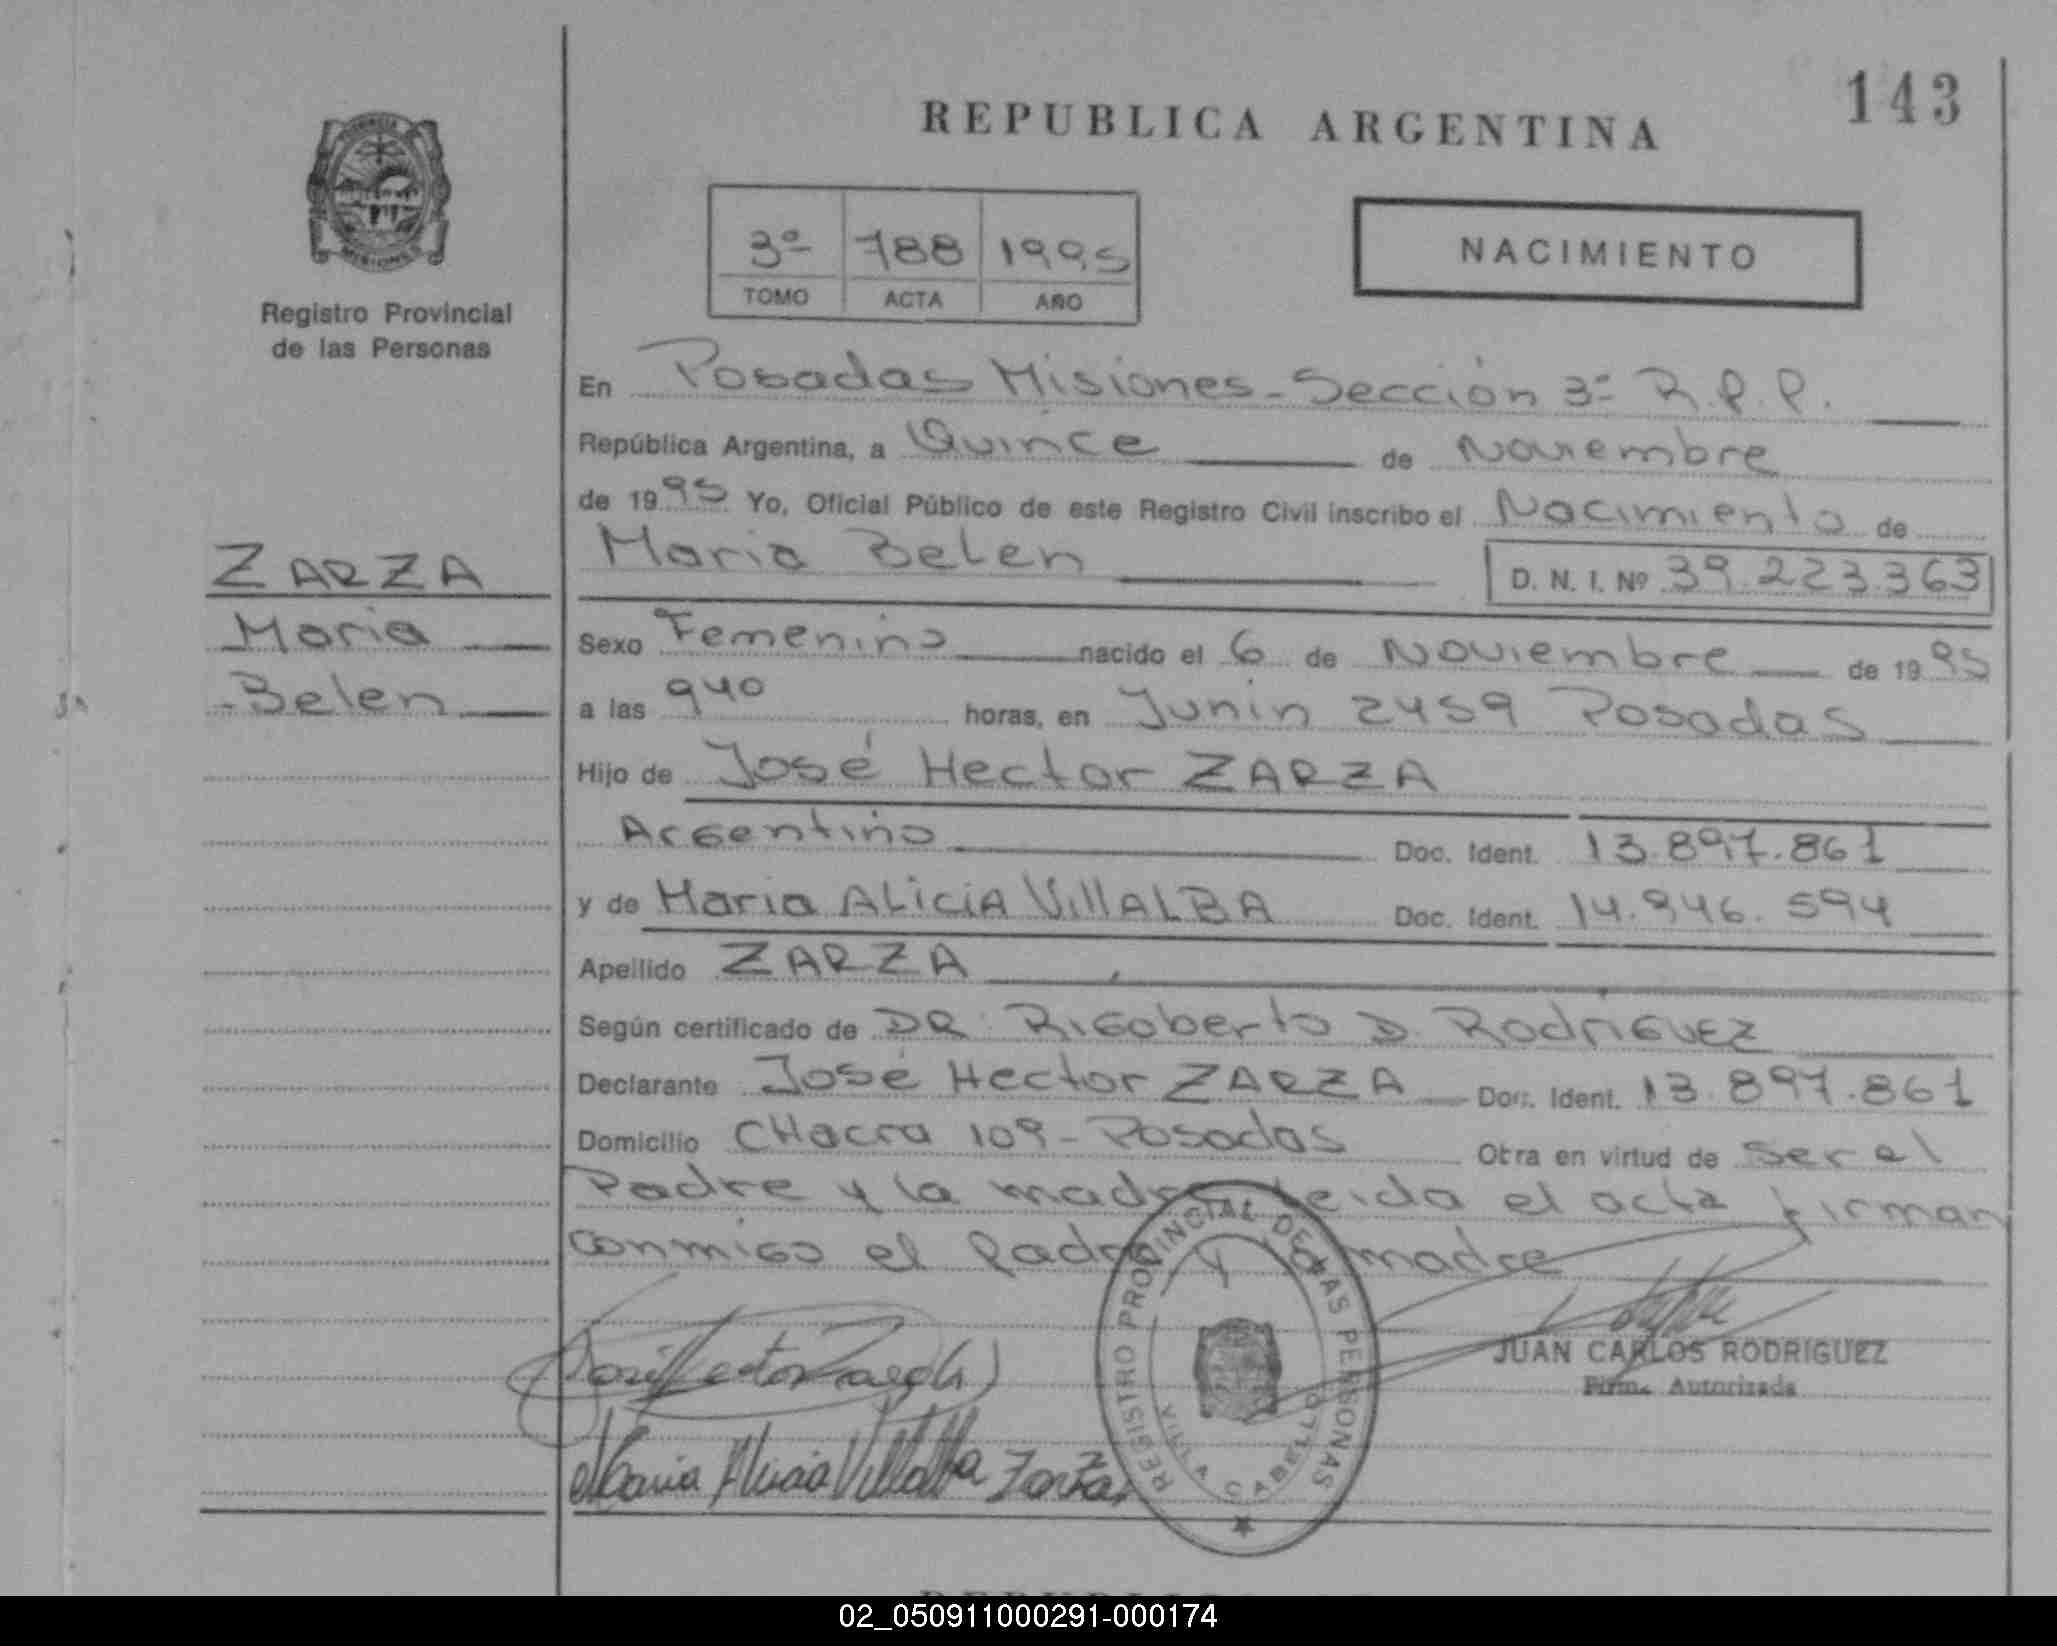 143
REPUBLICA ARGENTINA
3º 788 1995
TOMO ACTA AÑO
NACIMIENTO
Registro Provincial
de las Personas
En Posadas Misiones - Sección 3º R.P.P.
República Argentina, a Quince de Noviembre
de 1995 Yo, Oficial Público de este Registro Civil inscribo el Nacimiento de
Maria Belen D. N. I. Nº 39.223.363
ZARZA
Maria
Belen
Sexo Femenino nacido el 6 de Noviembre de 1995
a las 940 horas, en Junin 2459 Posadas
Hijo de José Hector ZARZA
Argentino Doc. Ident. 13.897.861
y de Maria ALiciA VillALBA Doc. Ident. 14.946.594
Apellido ZARZA
Según certificado de DR. Rigoberto D. RodriGUEZ
Declarante José Hector ZARZA Doc. Ident. 13.897.861
Domicilio CHacra 109 - Posadas Otra en virtud de ser el
Padre y la madre leida el acta firman
conmigo el Padre madre
REGISTRO PROVINCIAL DE LAS PERSONAS
VILLA CABELLO
JUAN CARLOS RODRIGUEZ
Firma Autorizada
Maria Alicia Villalba Zarza
02_050911000291-000174